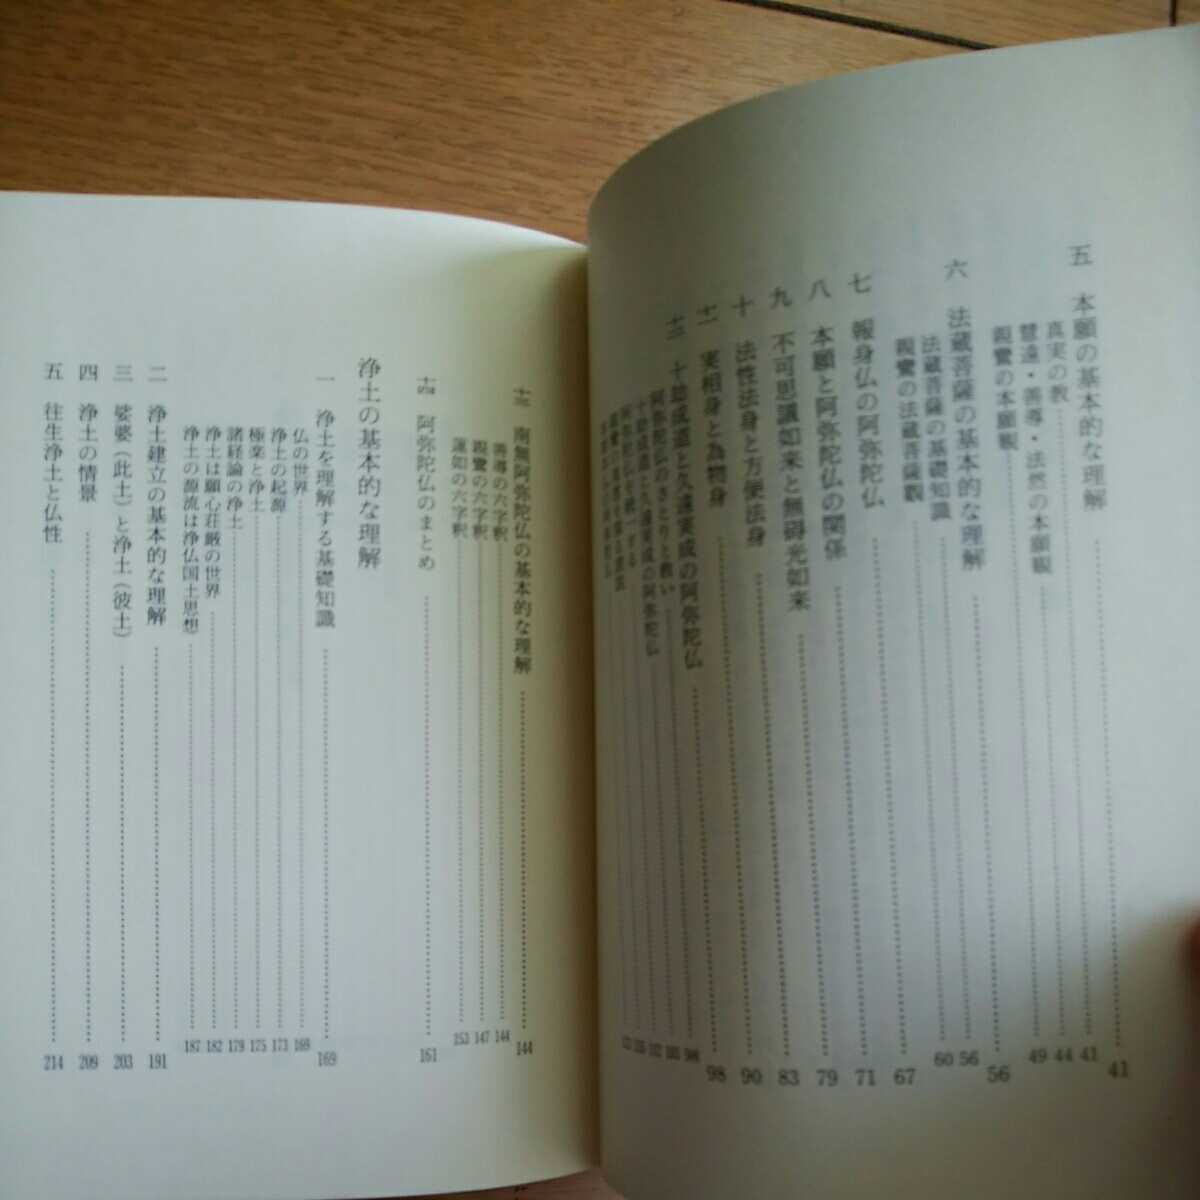 五 本願の基本的な理解 41
真実の教 41
慧遠・善導・法然の本願観 44
親鸞の本願観 49
六 法蔵菩薩の基本的な理解 56
法蔵菩薩の基礎知識 56
親鸞の法蔵菩薩観 60
七 報身仏の阿弥陀仏 67
八 本願と阿弥陀仏の関係 71
九 不可思議如来と無碍光如来 79
十 法性法身と方便法身 83
十一 実相身と為物身 90
十二 十劫成道と久遠実成の阿弥陀仏 98
阿弥陀仏のさとりと救い
十劫成道と久遠実成の阿弥陀仏
阿弥陀仏を統一する
十三 南無阿弥陀仏の基本的な理解 144
善導の六字釈 144
親鸞の六字釈 147
蓮如の六字釈 153
十四 阿弥陀仏のまとめ 161
浄土の基本的な理解
一 浄土を理解する基礎知識 169
仏の世界 169
浄土の起源 173
極楽と浄土 175
諸経論の浄土 179
浄土は願心荘厳の世界 182
浄土の源流は浄仏国土思想 187
二 浄土建立の基本的な理解 191
三 娑婆(此土)と浄土(彼土) 203
四 浄土の情景 209
五 往生浄土と仏性 214